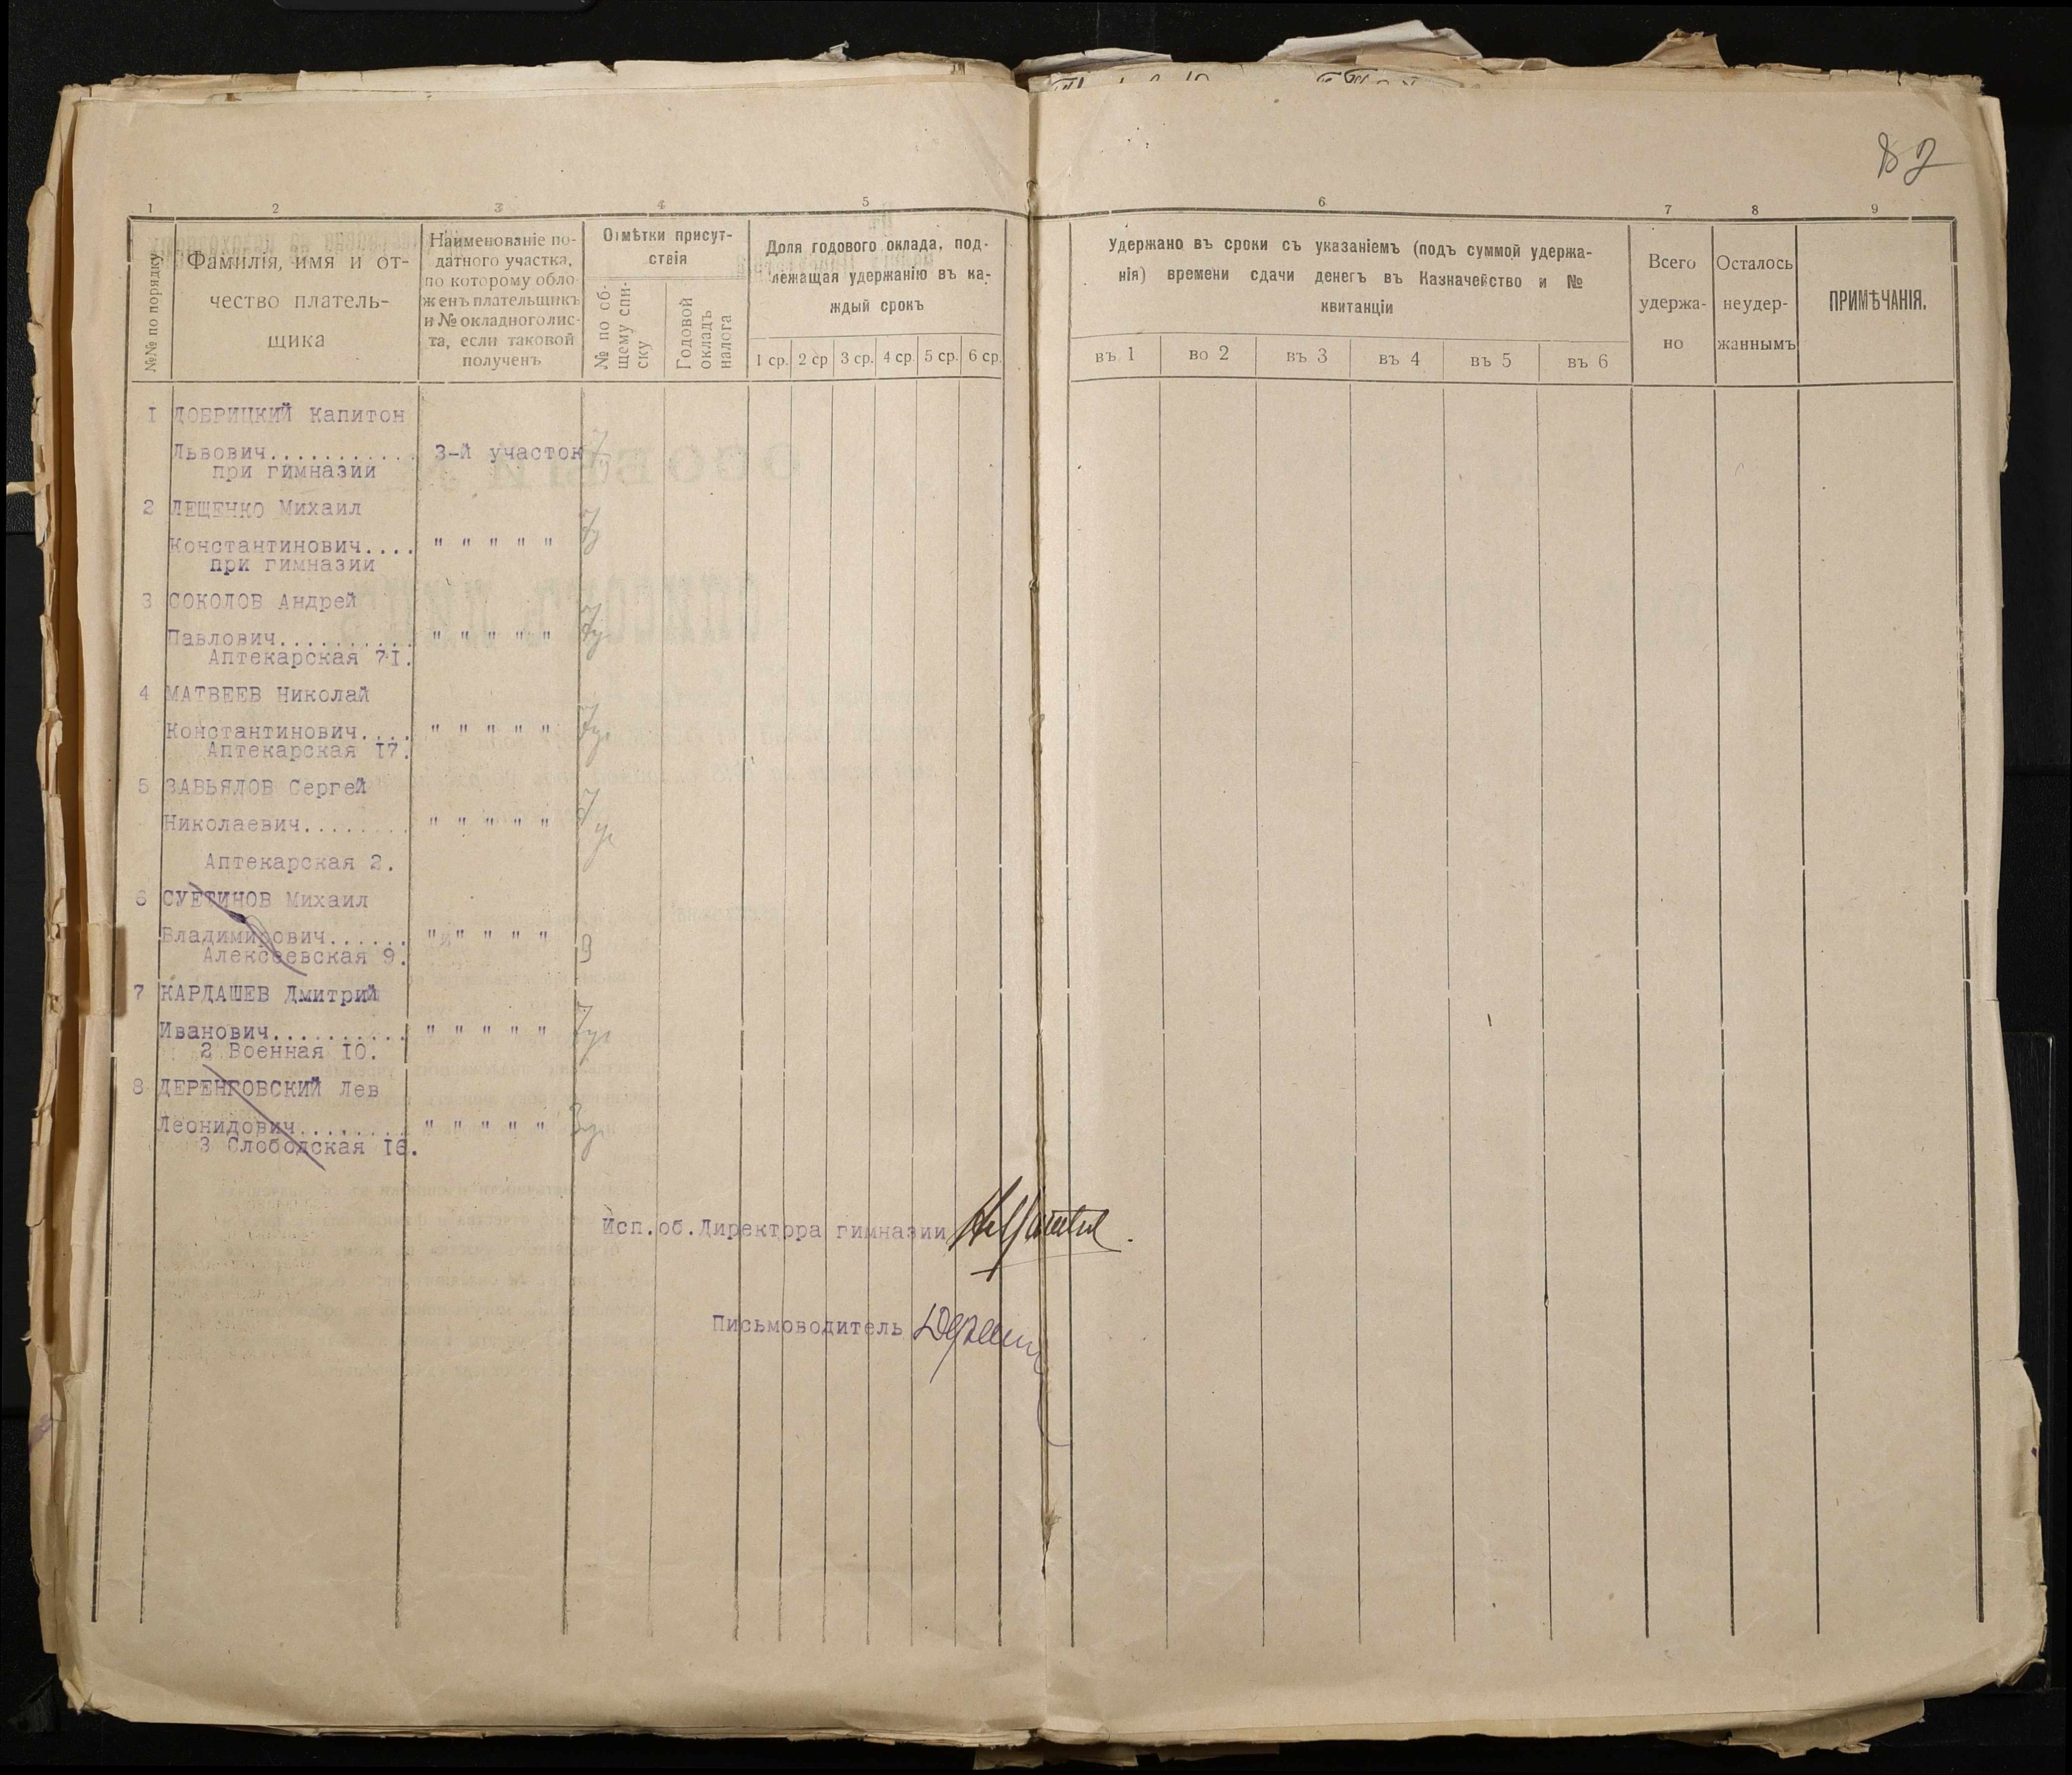 82
1 2 3 4 5 6 7 8 9
№№ по порядку
Фамилія, имя и от-
чество платель-
щика
Наименованіе по-
датного участка,
по которому обло-
женъ плательщикъ
и № окладного лис-
та, если таковой
полученъ
Отмѣтки присут-
ствія
№ по об-
щему спи-
ску
Годовой
окладъ
налога
Доля годового оклада, под-
лежащая удержанію въ ка-
ждый срокъ
1 ср. 2 ср 3 ср. 4 ср. 5 ср. 6 ср.
Удержано въ сроки съ указаніемъ (подъ суммой удержа-
нія) времени сдачи денегъ въ Казначейство и №
квитанціи
въ 1 во 2 въ 3 въ 4 въ 5 въ 6
Всего
удержа-
но
Осталось
неудер-
жаннымъ
ПРИМѢЧАНІЯ.
I ДОБРИЦКИЙ Капитон
Львович........... 3-й участок
при гимназии
2 ЛЕЩЕНКО Михаил
Константинович.... " " " " "
при гимназии
3 СОКОЛОВ Андрей
Павлович.......... " " " " "
Аптекарская 7I.
4 МАТВЕЕВ Николай
Константинович.... " " " " "
Аптекарская I7.
5 ЗАВЬЯЛОВ Сергей
Николаевич........ " " " " "
Аптекарская 2.
6 СУЕТИНОВ Михаил
Владимирович...... " " " " "
Алексеевская 9.
7 КАРДАШЕВ Дмитрий
Иванович.......... " " " " "
2 Военная I0.
8 ДЕРЕНГОВСКИЙ Лев
Леонидович........ " " " " "
3 Слободская I6.
Исп.об.Директора гимназии
Письмоводитель